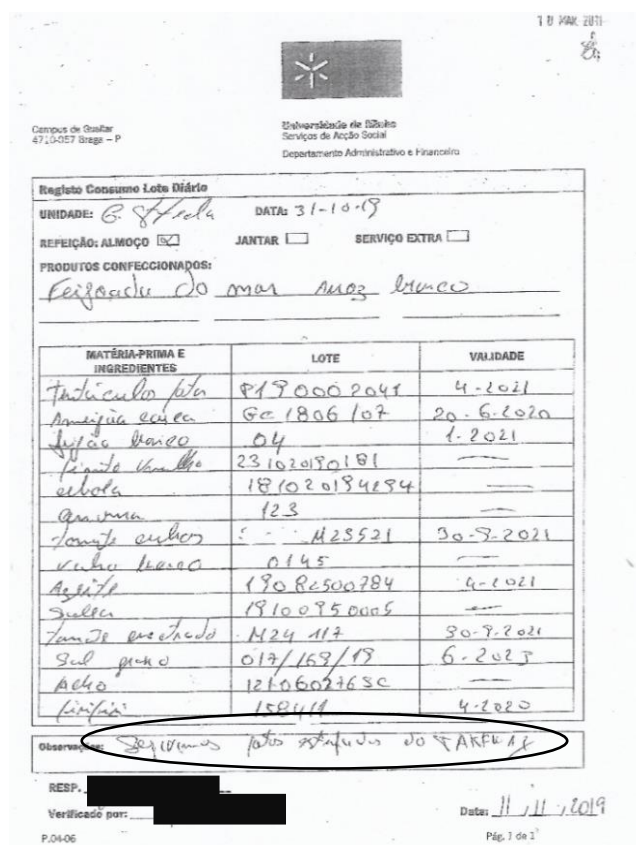 18 MAR 2011
Campus de Gualtar
4710-057 Braga – P
Universidade do Minho
Serviços de Acção Social
Departamento Administrativo e Financeiro
Registo Consumo Lote Diário
UNIDADE: DATA: 31-10-19
REFEIÇÃO: ALMOÇO JANTAR SERVIÇO EXTRA
PRODUTOS CONFECCIONADOS:
Feijoada do mar Arroz branco
MATÉRIA-PRIMA E INGREDIENTES LOTE VALIDADE
Tentáculos pota P190002041 4-2021
Ameijoa GC 1806/07 20-6-2020
feijão branco 04 1-2021
Pimento Vermelho 231020190181
cebola
cenoura 123
tomate cubos M23521 30-9-2021
vinho branco 0145
Azeite 19082500784 4-2021
Salsa 19100950005
Tomate M24 117 30-9-2021
Sal 017/169/19 6-2023
Alho
piripiri 4-2020
Observações: Servimos
RESP.
Verificado por: Data: 11, 11, 2019
P.04-06 Pág. 1 de 1